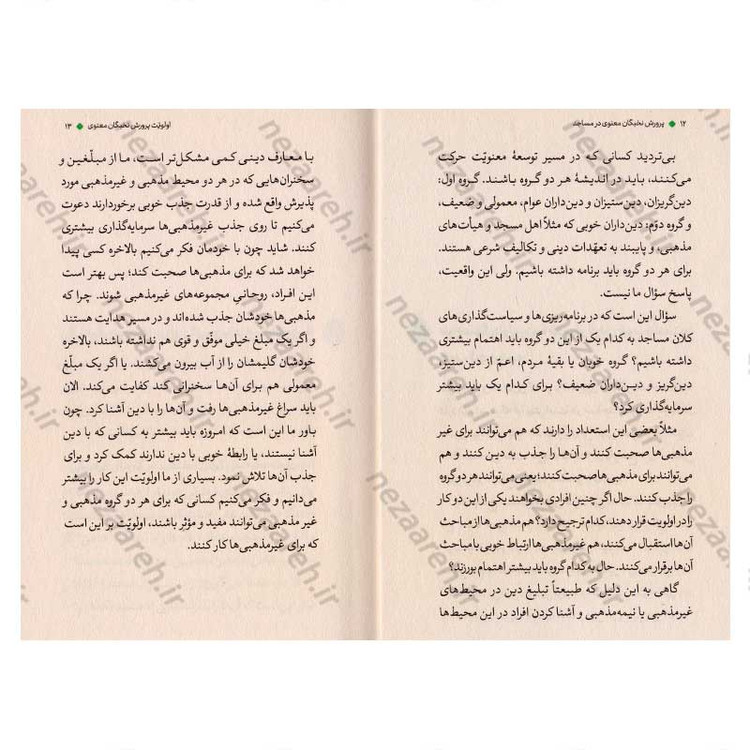 ۱۲ ◆ پرورش نخبگان معنوی در مساجد
بی‌تردید کسانی که در مسیر توسعهٔ معنویّت حرکت
می‌کنند، باید در اندیشهٔ هر دو گروه باشند. گروه اول:
دین‌گریزان، دین‌ستیزان و دین‌داران عوام، معمولی و ضعیف،
و گروه دوّم: دین‌داران خوبی که مثلاً اهل مسجد و هیأت‌های
مذهبی، و پایبند به تعهّدات دینی و تکالیف شرعی هستند.
برای هر دو گروه باید برنامه داشته باشیم. ولی این واقعیت،
پاسخ سؤال ما نیست.
سؤال این است که در برنامه‌ریزی‌ها و سیاست‌گذاری‌های
کلان مساجد به کدام یک از این دو گروه باید اهتمام بیشتری
داشته باشیم؟ گروه خوبان یا بقیهٔ مردم، اعمّ از دین‌ستیز،
دین‌گریز و دین‌داران ضعیف؟ برای کدام یک باید بیشتر
سرمایه‌گذاری کرد؟
مثلاً بعضی این استعداد را دارند که هم می‌توانند برای غیر
مذهبی‌ها صحبت کنند و آن‌ها را جذب به دین کنند و هم
می‌توانند برای مذهبی‌ها صحبت کنند؛ یعنی می‌توانند هر دو گروه
را جذب کنند. حال اگر چنین افرادی بخواهند یکی از این دو کار
را در اولویت قرار دهند، کدام ترجیح دارد؟ هم مذهبی‌ها از مباحث
آن‌ها استقبال می‌کنند، هم غیرمذهبی‌ها ارتباط خوبی با مباحث
آن‌ها برقرار می‌کنند. حال به کدام گروه باید بیشتر اهتمام بورزند؟
گاهی به این دلیل که طبیعتاً تبلیغ دین در محیط‌های
غیرمذهبی یا نیمه‌مذهبی و آشنا کردن افراد در این محیط‌ها
اولویّت پرورش نخبگان معنوی ◆ ۱۳
با معارف دینی کمی مشکل‌تر است، ما از مبلّغین و
سخنران‌هایی که در هر دو محیط مذهبی و غیرمذهبی مورد
پذیرش واقع شده و از قدرت جذب خوبی برخوردارند دعوت
می‌کنیم تا روی جذب غیرمذهبی‌ها سرمایه‌گذاری بیشتری
کنند. شاید چون با خودمان فکر می‌کنیم بالاخره کسی پیدا
خواهد شد که برای مذهبی‌ها صحبت کند؛ پس بهتر است
این افراد، روحانیِ مجموعه‌های غیرمذهبی شوند. چرا که
مذهبی‌ها خودشان جذب شده‌اند و در مسیر هدایت هستند
و اگر یک مبلغ خیلی موفّق و قوی هم نداشته باشند، بالاخره
خودشان گلیمشان را از آب بیرون می‌کشند. یا اگر یک مبلّغ
معمولی هم برای آن‌ها سخنرانی کند کفایت می‌کند. الان
باید سراغ غیرمذهبی‌ها رفت و آن‌ها را با دین آشنا کرد. چون
باور ما این است که امروزه باید بیشتر به کسانی که با دین
آشنا نیستند، یا رابطهٔ خوبی با دین ندارند کمک کرد و برای
جذب آن‌ها تلاش نمود. بسیاری از ما اولویّت این کار را بیشتر
می‌دانیم و فکر می‌کنیم کسانی که برای هر دو گروه مذهبی و
غیر مذهبی می‌توانند مفید و مؤثر باشند، اولویّت بر این است
که برای غیرمذهبی‌ها کار کنند.
nezaareh.ir
nezaareh.ir
nezaareh.ir
nezaareh.ir
nezaareh.ir
nezaareh.ir